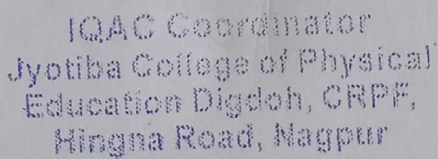 IQAC Coordinator
Jyotiba College of Physical
Education Digdoh, CRPF,
Hingna Road, Nagpur